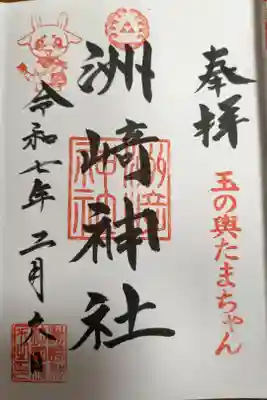 奉拝
玉の輿たまちゃん
洲崎神社
令和七年二月六日